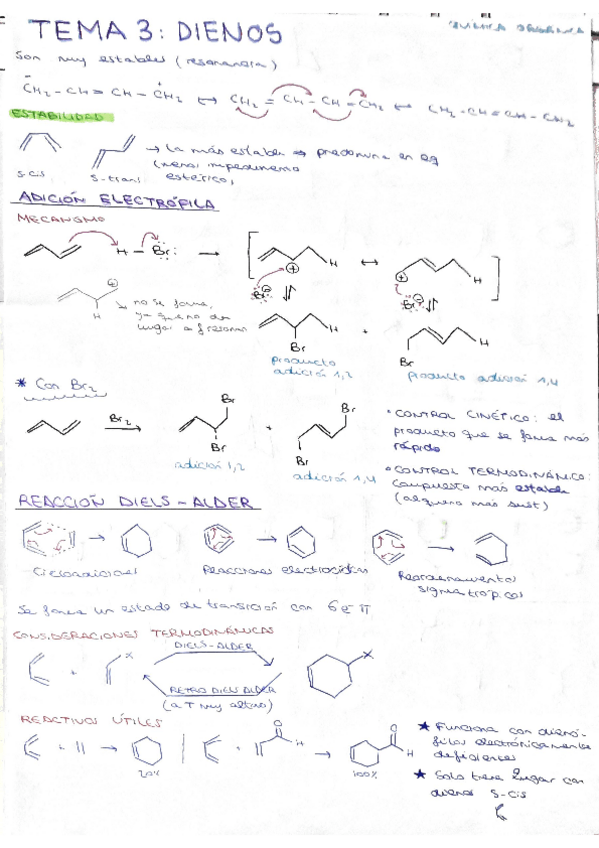 TEMA 3: DIENOS
QUÍMICA ORGÁNICA
Son muy estables (resonancia)
CH₂ - CH = CH - CH₂ ↔ CH₂ = CH - CH = CH₂ ↔ CH₂ - CH = CH - CH₂
ESTABILIDAD
→ La más estable → predomina en eq
(menor impedimento
estérico)
s-cis
s-trans
ADICIÓN ELECTRÓFILA
MECANISMO
H - Br:
→
H
↔
H
Br
Br
H
no se forma,
ya que no da
lugar a f resonan
H
+
H
Br
Br
producto
adición 1,2
producto adición 1,4
* Con Br₂
Br₂
Br
Br
+
Br
Br
adición 1,2
adición 1,4
• CONTROL CINÉTICO: el
producto que se forma más
rápido
• CONTROL TERMODINÁMICO:
compuesto más estable
(alqueno más sust)
REACCIÓN DIELS - ALDER
Cicloadiciones
Reacciones electrocíclicas
Reordenamientos
sigmatrópicos
Se forma un estado de transición con 6 e⁻ π
CONSIDERACIONES TERMODINÁMICAS
DIELS-ALDER
+
X
X
RETRO DIELS ALDER
(a T muy altas)
REACTIVOS ÚTILES
+
→
20%
+
O
H
→
O
H
100%
★ Funciona con dienó-
filos electrónicamente
deficientes
★ Solo tiene lugar con
dienos s-cis